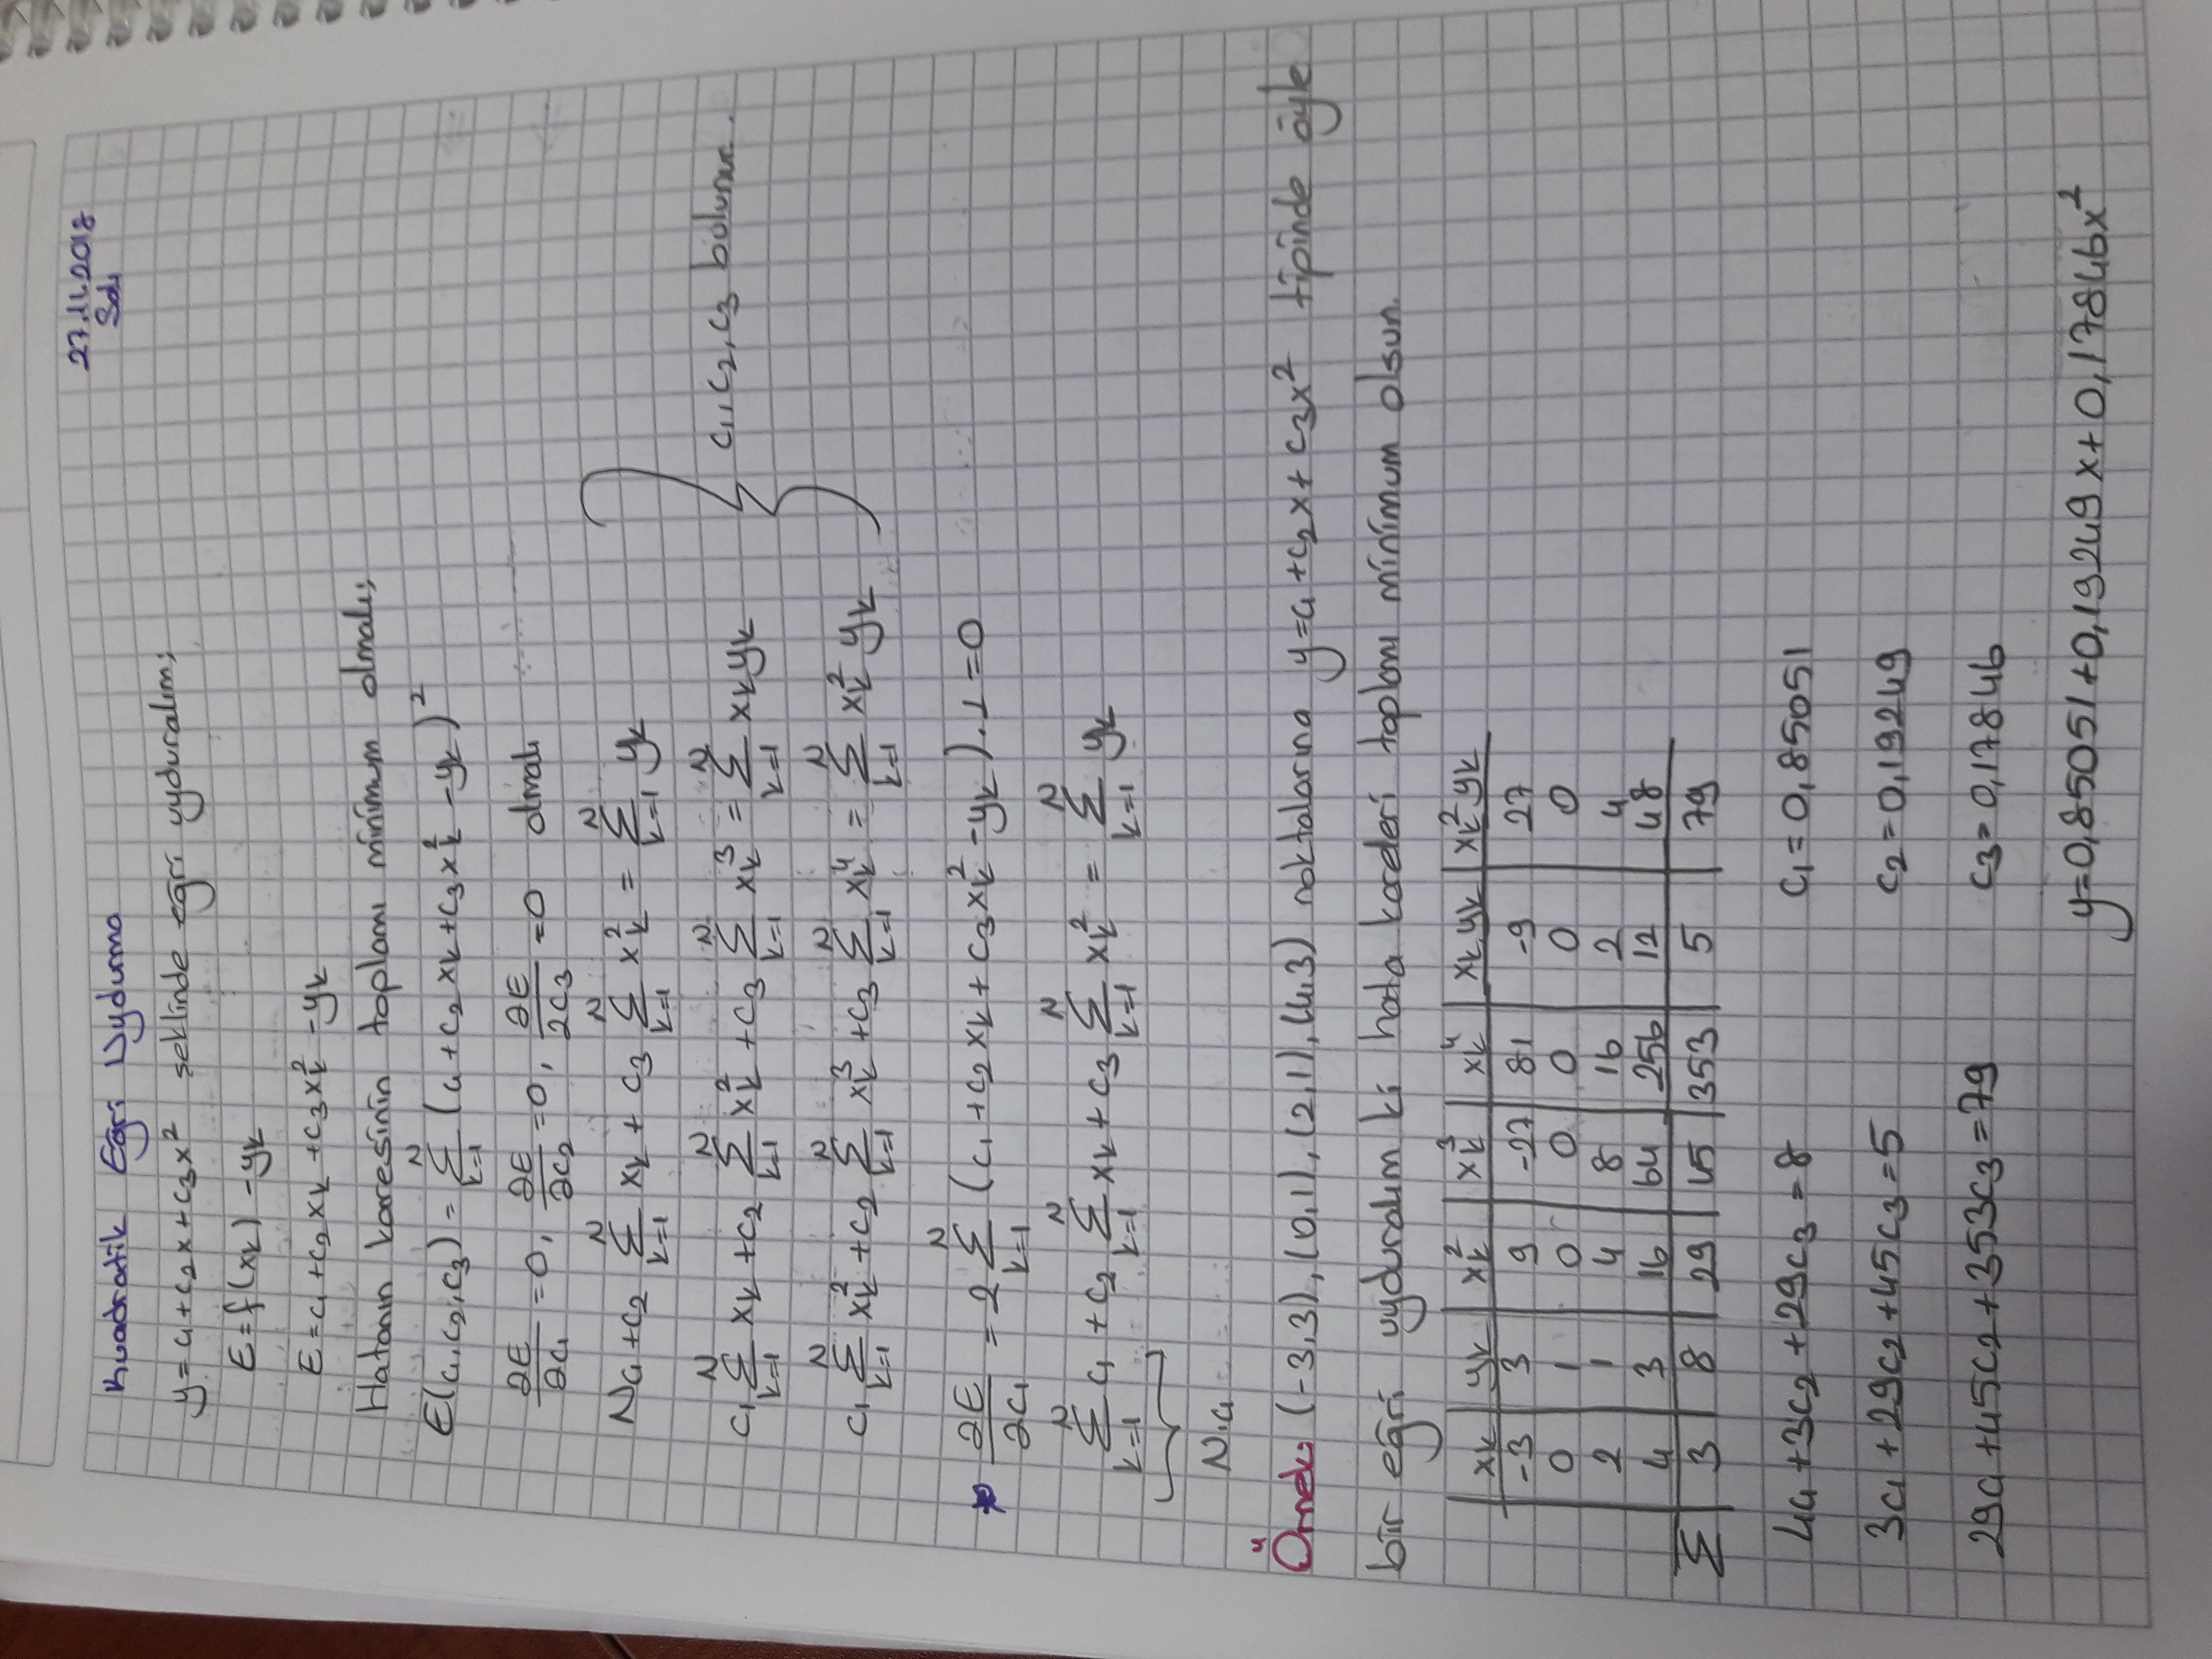 27.11.2018
Salı
Kuadratik Eğri Uydurma
y = c₁ + c₂x + c₃x² şeklinde eğri uyduralım;
E = f(xₖ) - yₖ
E = c₁ + c₂xₖ + c₃xₖ² - yₖ
Hatanın karesinin toplamı minimum olmalı;
E(c₁,c₂,c₃) = Σ_{k=1}^{N} (c₁ + c₂xₖ + c₃xₖ² - yₖ)²
∂E/∂c₁ = 0, ∂E/∂c₂ = 0, ∂E/∂c₃ = 0 olmalı
Nc₁ + c₂ Σ_{k=1}^{N} xₖ + c₃ Σ_{k=1}^{N} xₖ² = Σ_{k=1}^{N} yₖ
c₁ Σ_{k=1}^{N} xₖ + c₂ Σ_{k=1}^{N} xₖ² + c₃ Σ_{k=1}^{N} xₖ³ = Σ_{k=1}^{N} xₖyₖ } c₁, c₂, c₃ bulunur.
c₁ Σ_{k=1}^{N} xₖ² + c₂ Σ_{k=1}^{N} xₖ³ + c₃ Σ_{k=1}^{N} xₖ⁴ = Σ_{k=1}^{N} xₖ² yₖ
* ∂E/∂c₁ = 2 Σ_{k=1}^{N} (c₁ + c₂xₖ + c₃xₖ² - yₖ).1 = 0
Σ_{k=1}^{N} c₁ + c₂ Σ_{k=1}^{N} xₖ + c₃ Σ_{k=1}^{N} xₖ² = Σ_{k=1}^{N} yₖ
N.c₁
Örnek: (-3,3), (0,1), (2,1), (4,3) noktalarına y = c₁ + c₂x + c₃x² tipinde öyle
bir eğri uyduralım ki hata kareleri toplamı minimum olsun.
xₖ | yₖ | xₖ² | xₖ³ | xₖ⁴ | xₖ yₖ | xₖ² yₖ
-3 | 3 | 9 | -27 | 81 | -9 | 27
0 | 1 | 0 | 0 | 0 | 0 | 0
2 | 1 | 4 | 8 | 16 | 2 | 4
4 | 3 | 16 | 64 | 256 | 12 | 48
Σ | 3 | 8 | 29 | 45 | 353 | 5 | 79
4c₁ + 3c₂ + 29c₃ = 8 c₁ = 0,85051
3c₁ + 29c₂ + 45c₃ = 5 c₂ = 0,19249
29c₁ + 45c₂ + 353c₃ = 79 c₃ = 0,17846
y = 0,85051 + 0,19249x + 0,17846x²